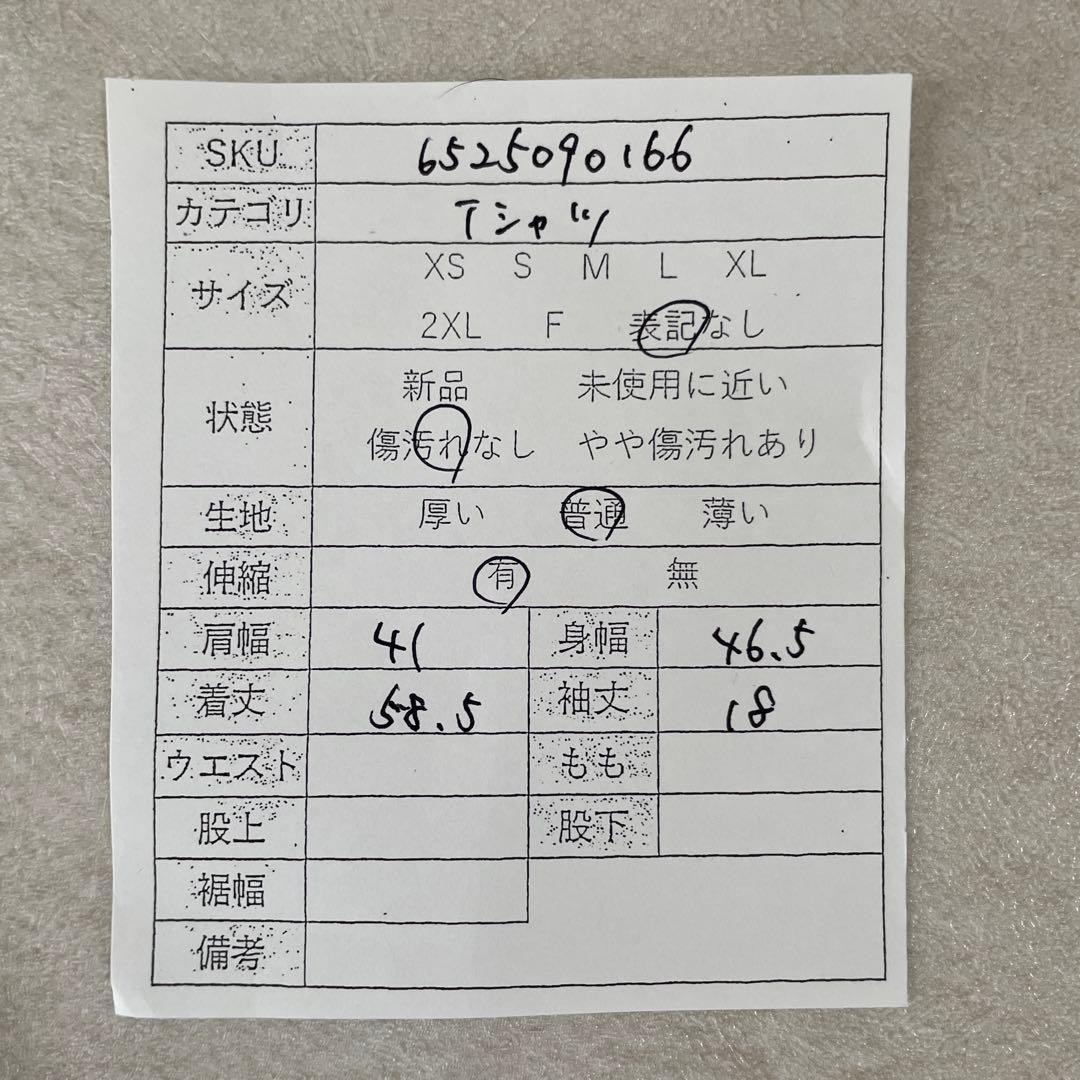 SKU 6525090166
カテゴリ Tシャツ
サイズ XS S M L XL
2XL F 表記なし
状態 新品 未使用に近い
傷汚れなし やや傷汚れあり
生地 厚い 普通 薄い
伸縮 有 無
肩幅 41 身幅 46.5
着丈 58.5 袖丈 18
ウエスト もも
股上 股下
裾幅
備考